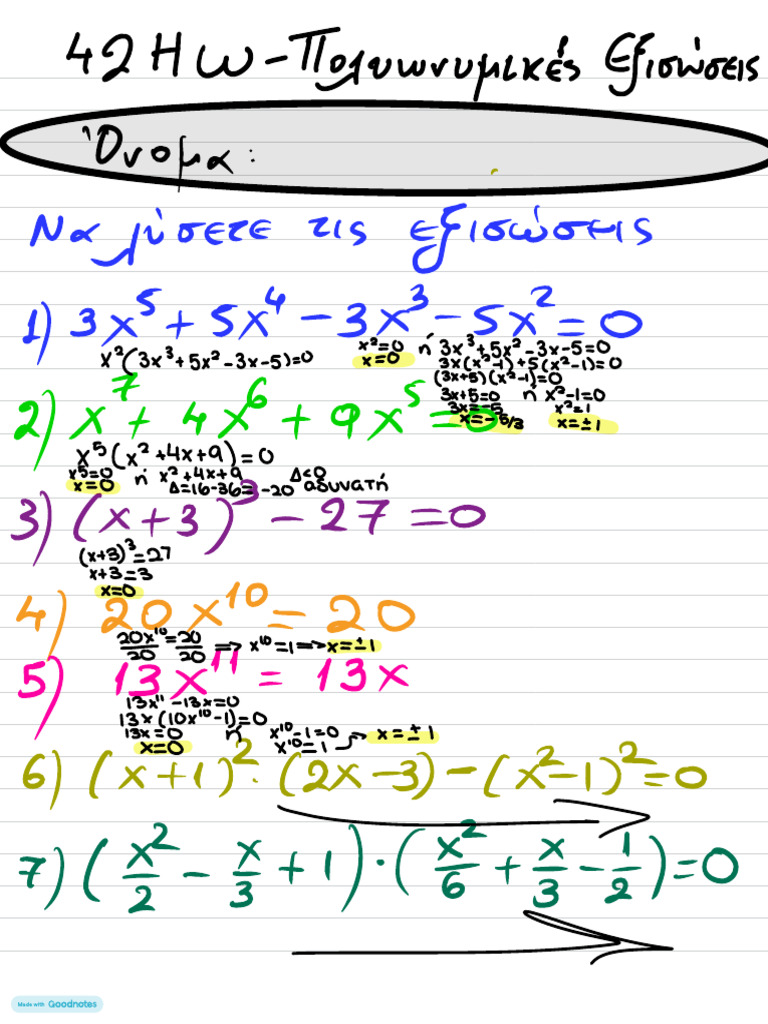 42ΗΩ - Πολυωνυμικές Εξισώσεις
Όνομα:
Να λύσετε τις εξισώσεις
1) 3x⁵ + 5x⁴ - 3x³ - 5x² = 0
x²(3x³+5x²-3x-5)=0
x²=0 ή 3x³+5x²-3x-5=0
x=0 3x(x²-1)+5(x²-1)=0
(3x+5)(x²-1)=0
3x+5=0 ή x²-1=0
3x=-5 x²=1
x=-5/3 x=±1
2) x⁷ + 4x⁶ + 9x⁵ = 0
x⁵(x²+4x+9)=0
x⁵=0 ή x²+4x+9 Δ<0
x=0 Δ=16-36=-20 αδυνατή
3) (x+3)³ - 27 = 0
(x+3)³=27
x+3=3
x=0
4) 20x¹⁰ = 20
20x¹⁰/20=20/20 ⇒ x¹⁰=1 ⇒ x=±1
5) 13x¹¹ = 13x
13x¹¹-13x=0
13x(10x¹⁰-1)=0
13x=0 ή x¹⁰-1=0 → x=±1
x=0 x¹⁰=1
6) (x+1)²·(2x-3)-(x²-1)²=0
7) (x²/2 - x/3 + 1)·(x²/6 + x/3 - 1/2)=0
Made with Goodnotes